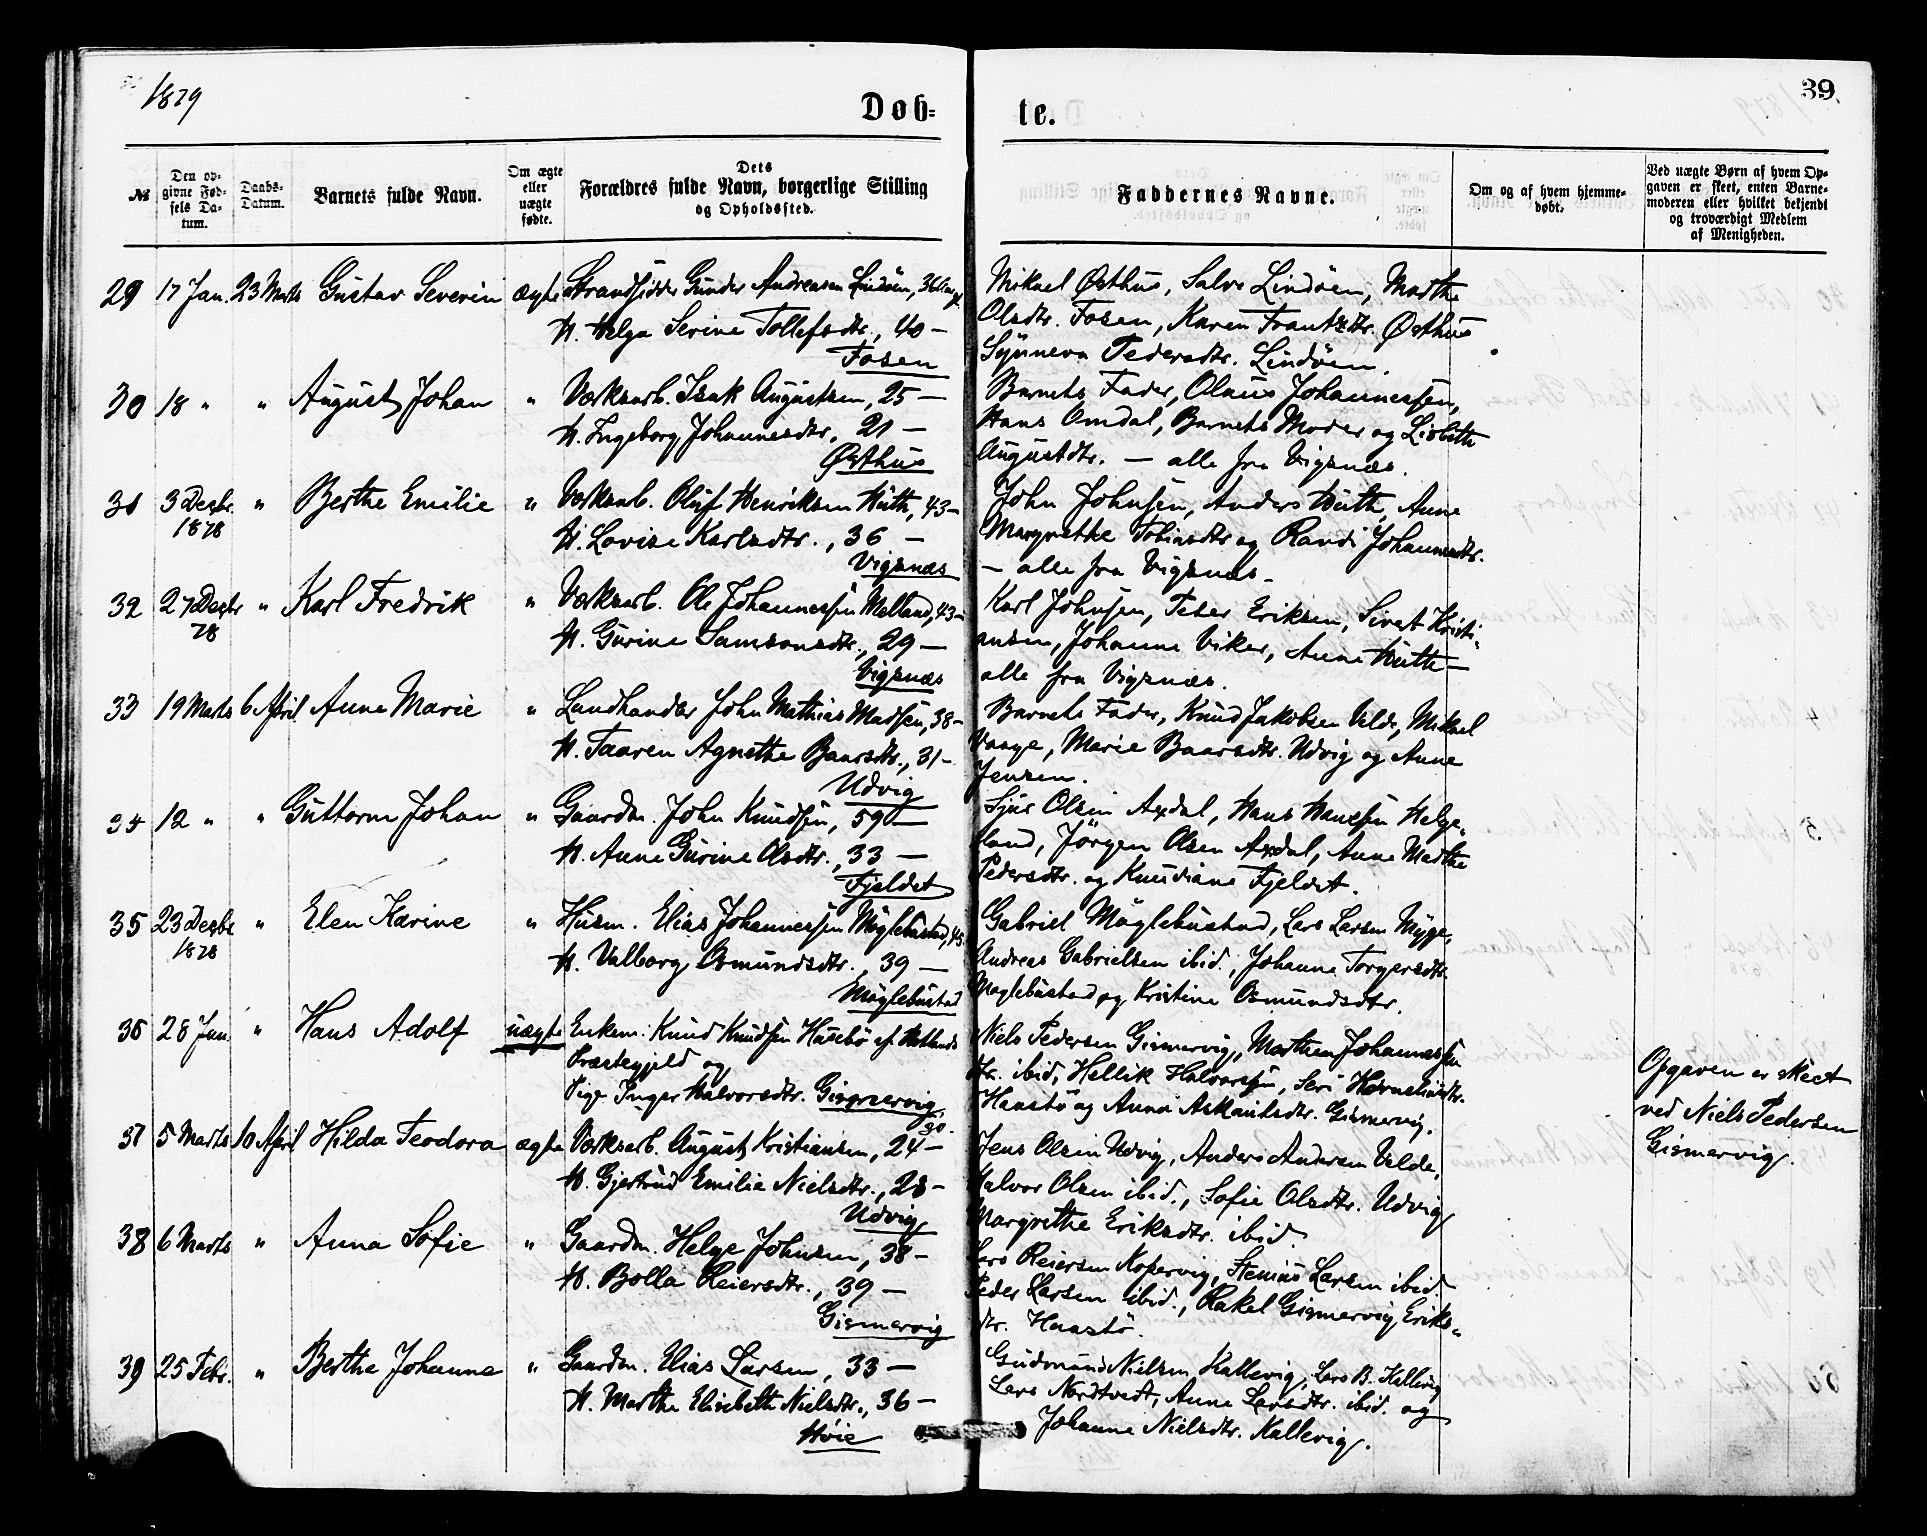 1879
Døb-
te.
39
№
Den op-
givne Fød-
sels Da-
tum.
Daabs-
Datum.
Barnets fulde Navn.
Om ægte
eller
uægte
fødte.
Dets
Forældres fulde Navn, borgerlige Stilling
og Opholdssted.
Faddernes Navne.
Om og af hvem hjemme-
døbt.
Ved uægte Børn af hvem Op-
gaven er skeet, enten Barne-
moderen eller hvilket bekjendt
og troværdigt Medlem
af Menigheden.
29 17 Jan. 23 Marts Gustav Severin ægte Strandsidder Gunder Andreasen Lindøen, 36
H. Helga Serine Tollefsdtr., 40 —
Fosen
Mikael Østhus, Salve Lindøen, Marthe
Olsdtr. Fosen, Karen Frantzdtr. Østhus
Synneva Pedersdtr. Lindøen.
30 18 " " August Johan " Værksarb. Isak Augustsen, 25 —
H. Ingeborg Johannesdtr., 21 —
Østhus
Barnets Fader, Olaus Johannessen,
Hans Omdal, Barnets Moder og Lisbeth
Augustdtr. — alle fra Vigsnæs.
31 3 Dezbr. " Berthe Emilie " Værksarb. Oluf Henriksen Huth, 43 —
1878
H. Lovise Karlsdtr., 36 —
Vigsnæs
John Johnsen, Anders Huth, Anne
Margrethe Tobiasdtr og Randi Johannesdtr.
— alle fra Vigsnæs.
32 27 Dezbr " Karl Fredrik " Værksarb. Ole Johannessen Melland, 43 —
78
H. Gurine Samsonsdtr., 29 —
Vigsnæs
Karl Johnsen, Peter Eriksen, Sivert Kristi-
ansen, Johanne Viker, Anne Huth —
alle fra Vigsnæs.
33 19 Marts 6 April Anne Marie " Landhandler John Mathias Madsen, 38 —
H. Taaren Agnethe Baarsdtr., 31 —
Udvig
Barnets Fader, Knud Jakobsen Velde, Mikael
Vaage, Marie Baarsdtr. Udvig og Anne
Jensen.
34 12 " " Guttorm Johan " Gaardm. John Knudsen, 59 —
H. Anne Gurine Olsdtr., 33 —
Fjeldet
Sjur Olsen Axdal, Hans Hansen Helge-
land, Jörgen Olsen Axdal, Anne Marthe
Pedersdtr. og Knudiane Fjeldet.
35 23 Dezbr " Elen Karine " Husm. Elias Johannessen Möglebustad, 45
1878
H. Valborg Osmundsdtr., 39 —
Möglebustad
Gabriel Möglebustad, Lars Larsen Myge,
Andreas Gabrielsen ibid., Johanne Torgersdtr.
Moglebustad og Kristine Osmundsdtr.
36 28 Jan. " Hans Adolf uægte Enkem. Knud Knudsen Husebö af
Præstegjeld og
Pige Inger Halvorsdtr. Gismervig,
30.
Niels Pedersen Gismervig, Marthea Johannessen
ibid, Hellik Halvorsen, Seri Korneliusdtr.
Haustö og Anna Askautsdtr. Gismervig.
Opgaven er skeet
ved Niels Pedersen
Gismervig.
37 5 Marts 10 April Hilda Teodora ægte Værksarb. August Kristiansen, 24 —
H. Gjertrud Emilie Nielsdtr., 28 —
Udvig
Jens Olsen Udvig, Anders Andersen Velde,
Halvor Olsen ibid., Sofie Olsdtr. Udvig
Margrethe Eriksdtr. ibid.
38 6 Marts " Anna Sofie " Gaardm. Helge Johnsen, 38 —
H. Bolla Reiersdtr., 39 —
Gismervig
Lars Reiersen Kopervig, Stenius Larsen ibid.
Peder Larsen ibid., Rakel Gismervig, Eriks-
dtr. Haustö.
39 25 Febr. " Berthe Johanne " Gaardm. Elias Larsen, 33 —
H. Marthe Elisabeth Nielsdtr., 36 —
Høie
Gudmund Nielsen Kallevig, Lars B. Kallevig
Lars Nordtvedt, Anne Larsdtr. ibid. og
Johanne Nielsdtr. Kallevig.